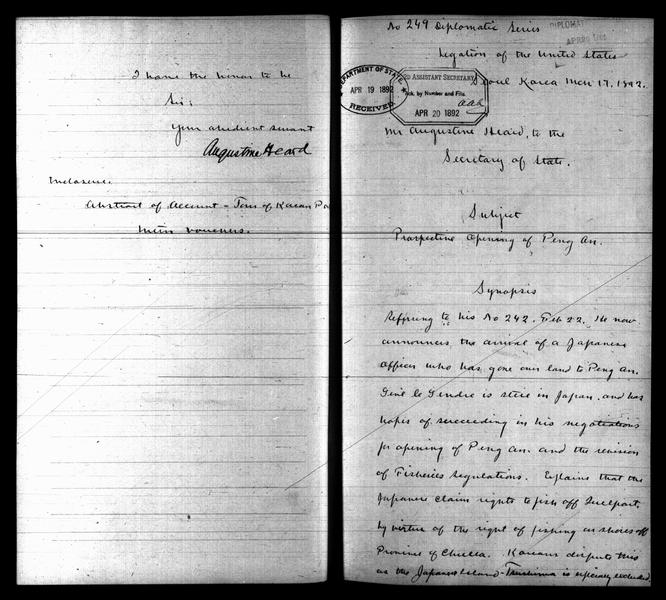 I have the honor to be
Sir:
Your obedient servant
Augustine Heard
Inclosure.
Abstract of Account - Tour of Korean Po
with vouchers.
No 249 Diplomatic Series
DIPLOMAT
APR 20 1892
Legation of the United States
Seoul Korea Mch 17, 1892.
DEPARTMENT OF STATE
APR 19 1892
RECEIVED
ASSISTANT SECRETARY
by Number and File.
APR 20 1892
Mr Augustine Heard, to the
Secretary of State.
Subject
Prospective opening of Peng An.
Synopsis
Referring to his No 242. Feb 22. He now
announces the arrival of a Japanese
officer who has gone over land to Peng An.
Genl Le Gendre is still in Japan, and has
hopes of succeeding in his negotiations
for opening of Peng An. and the revision
of Fisheries Regulations. Explains that the
Japanese claim rights to fish off Quelpart,
by virtue of the right of fishing on shores off
Province of Chulla. Koreans dispute this
as the Japanese Island - Tsushima is especially excluded.